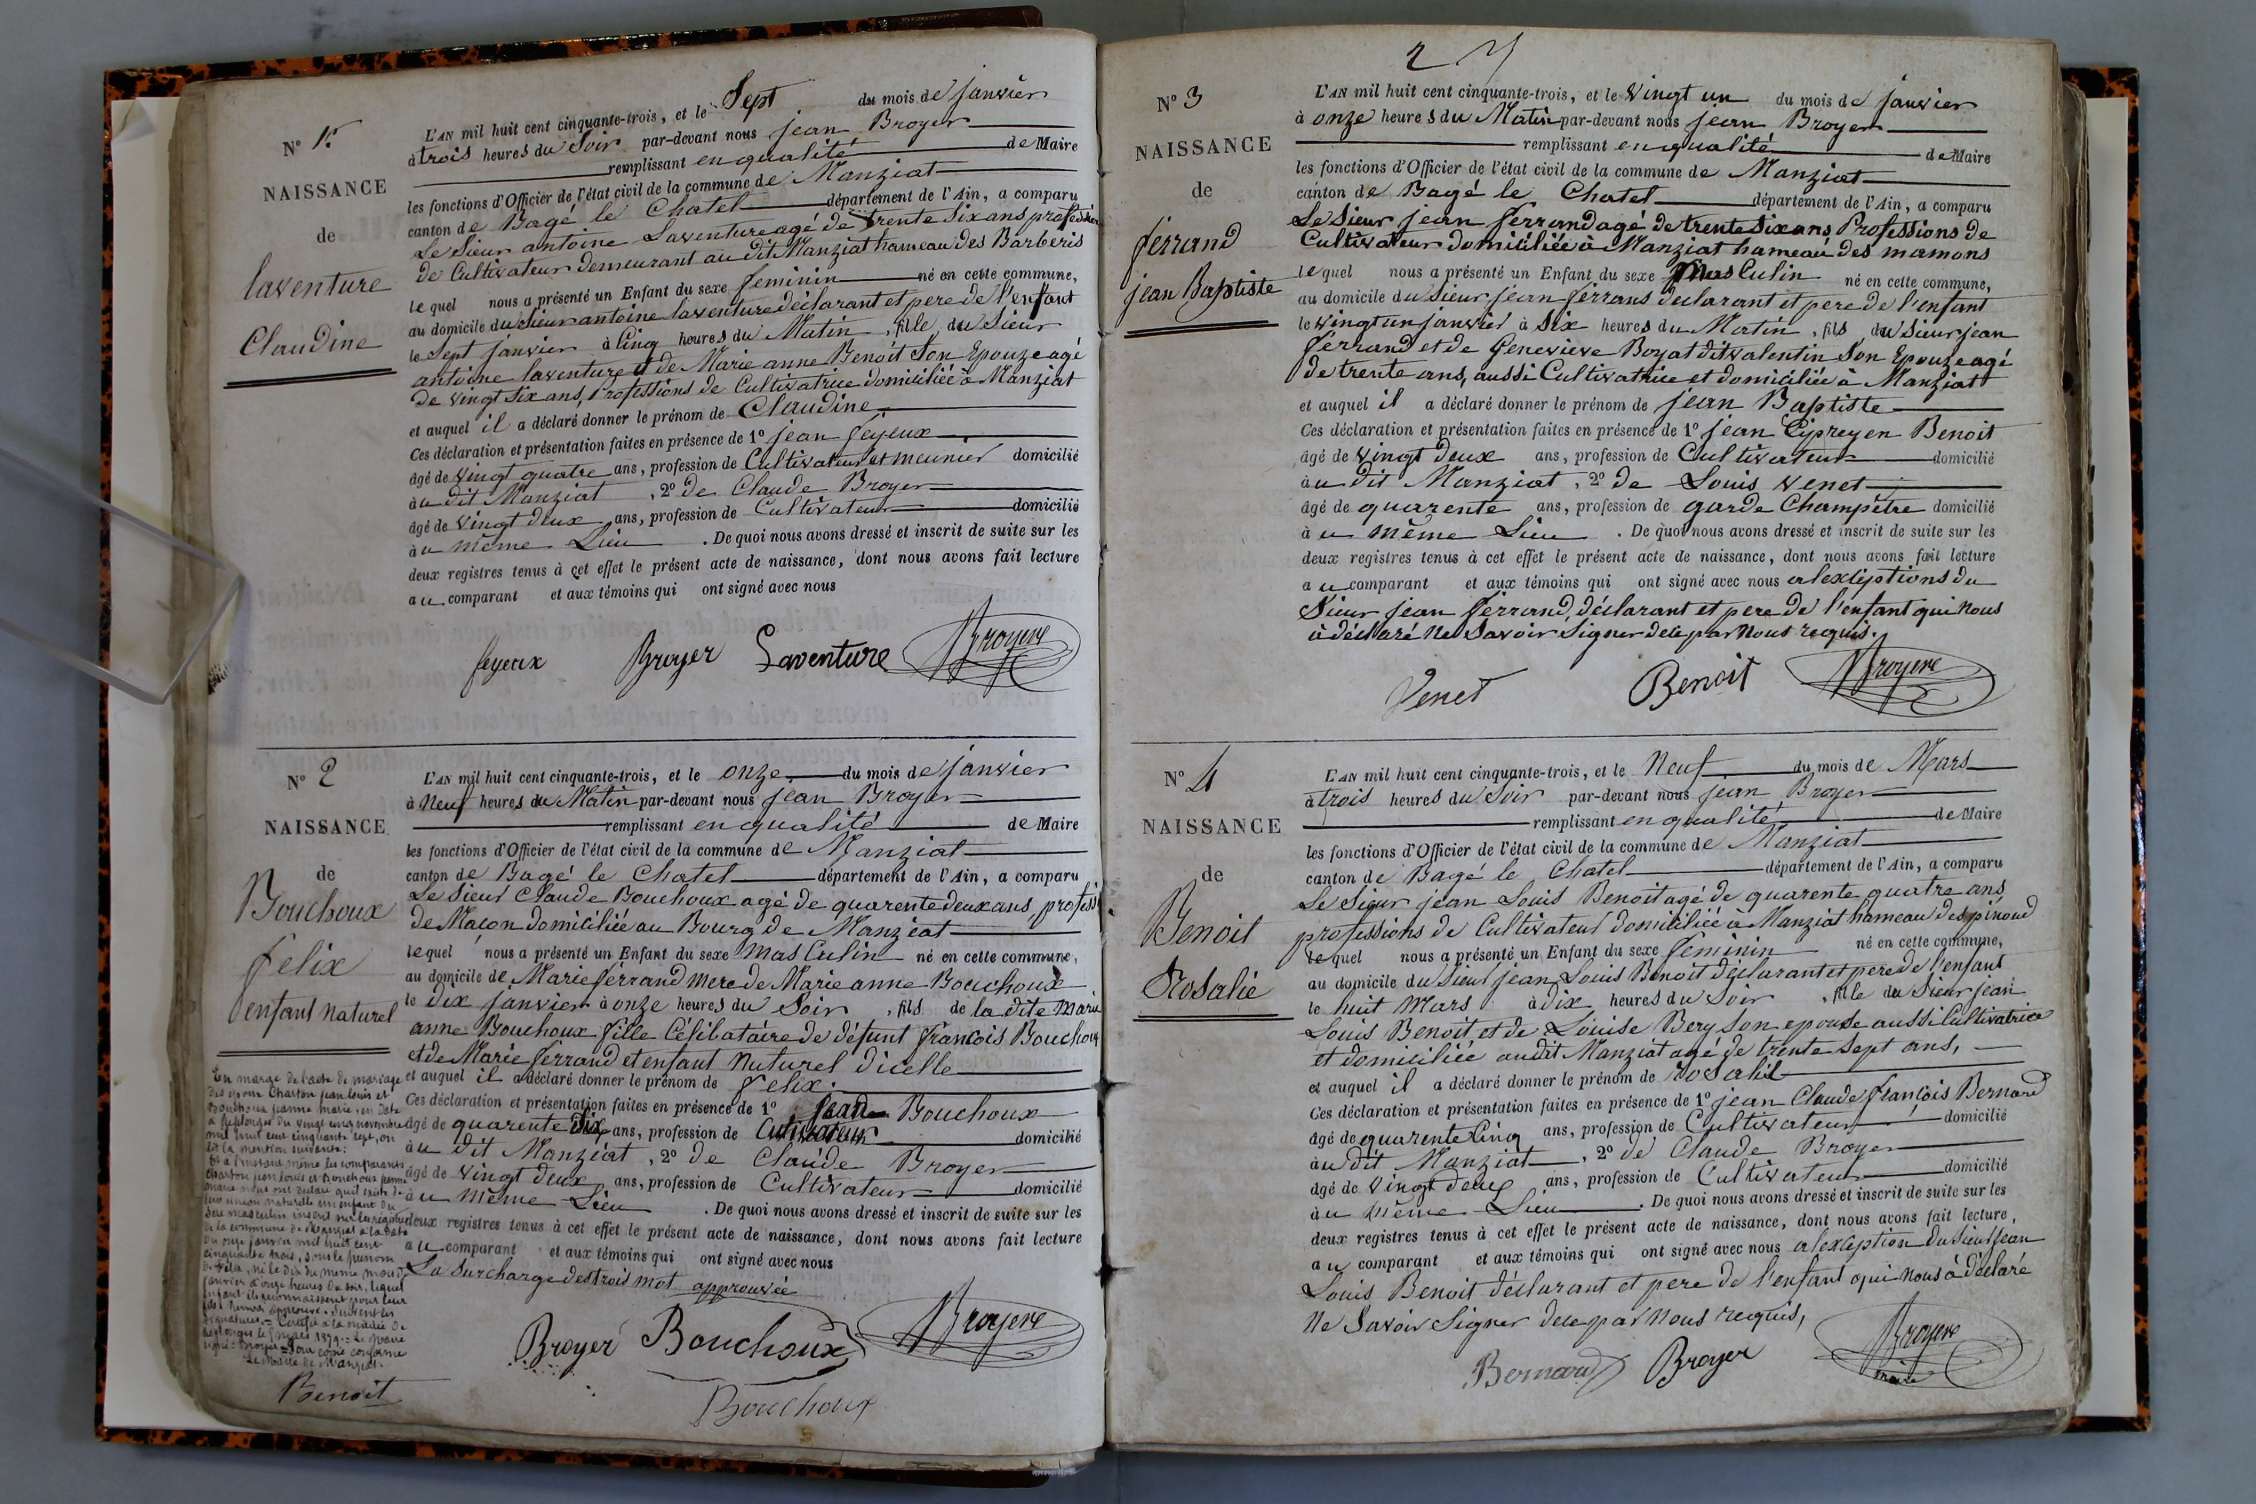 N° 1er
NAISSANCE
de
laventure
Claudine
L'AN mil huit cent cinquante-trois, et le Sept du mois de janvier
à trois heures du Soir par-devant nous jean Broyer
remplissant en qualité de Maire
les fonctions d'Officier de l'état civil de la commune de Manziat
canton de Bagé le Chatel département de l'Ain, a comparu
Le Sieur antoine Laventure agé de trente Six ans profession
de Cultivateur demeurant au dit Manziat hameau des Barberis
le quel nous a présenté un Enfant du sexe feminin né en cette commune,
au domicile du Sieur antoine laventure déclarant et pere de l'enfant
le Sept janvier à Cinq heures du Matin, fille du Sieur
antoine laventure et de Marie anne Benoit Son Epouze agé
de vingt Six ans, Professions de Cultivatrice domiciliée à Manziat
et auquel il a déclaré donner le prénom de Claudine
Ces déclaration et présentation faites en présence de 1° jean feyeux
âgé de vingt quatre ans, profession de Cultivateur et meunier domicilié
à u dit Manziat, 2° de Claude Broyer
âgé de vingt deux ans, profession de Cultivateur domicilié
à u même Lieu. De quoi nous avons dressé et inscrit de suite sur les
deux registres tenus à cet effet le présent acte de naissance, dont nous avons fait lecture
a u comparant et aux témoins qui ont signé avec nous
feyeux Broyer Laventure Broyere
N° 2
NAISSANCE
de
Bouchoux
felix
enfant naturel
L'AN mil huit cent cinquante-trois, et le onze du mois de janvier
à Neuf heures du Matin par-devant nous jean Broyer
remplissant en qualité de Maire
les fonctions d'Officier de l'état civil de la commune de Manziat
canton de Bagé le Chatel département de l'Ain, a comparu
Le Sieur Claude Bouchoux agé de quarente deux ans, professi
de Maçon domiciliée au Bourg de Manziat
lequel nous a présenté un Enfant du sexe Mas Culin né en cette commune,
au domicile de Marie ferrand mere de Marie anne Bouchoux
le dix janvier à onze heures du Soir, fils de la dite Marie
anne Bouchoux fille Célibataire de défunt françois Bouchoux
et de Marie ferrand et enfant Naturel dicelle
et auquel il a déclaré donner le prénom de felix.
Ces déclaration et présentation faites en présence de 1° jean Bouchoux
âgé de quarente Six ans, profession de Cultivateur domicilié
à u dit Manziat, 2° de Claude Broyer
âgé de vingt deux ans, profession de Cultivateur domicilié
à u même Lieu. De quoi nous avons dressé et inscrit de suite sur les
deux registres tenus à cet effet le présent acte de naissance, dont nous avons fait lecture
a u comparant et aux témoins qui ont signé avec nous
La Surcharge des trois mot approuvée
Broyer Bouchoux Broyere
Bouchoux
En marge de l'acte de mariage
des époux Charton jean louis et
Bouchoux jeanne marie, en date
à Replonges du vingt cinq novembre
mil huit cent cinquante sept, on
lit la mention suivante:
Et à l'instant même les comparants
Charton jean louis et Bouchoux jeanne
marie nous ont déclaré qu'il existe de
leur union naturelle un enfant du
sexe masculin inscrit sur les registres
de la commune de Manziat à la date
du onze janvier mil huit cent
cinquante trois, sous le prénom
de Félix, né le dix du même mois de
janvier à onze heures du soir, lequel
enfant ils reconnaissent pour leur
fils. Suivent les
signatures. = Certifié à la mairie de
Replonges le mars 1879. = Le Maire
signé: Broyer = Pour copie conforme
Le Maire de Manziat.
Benoit
2
N° 3
NAISSANCE
de
ferrand
jean Baptiste
L'AN mil huit cent cinquante-trois, et le Vingt un du mois de janvier
à onze heures du Matin par-devant nous jean Broyer
remplissant en qualité de Maire
les fonctions d'Officier de l'état civil de la commune de Manziat
canton de Bagé le Chatel département de l'Ain, a comparu
Le Sieur jean ferrand agé de trente Six ans Professions de
Cultivateur domiciliée à Manziat hameau des mamons
lequel nous a présenté un Enfant du sexe Mas Culin né en cette commune,
au domicile du Sieur jean ferrans déclarant et pere de l'enfant
le vingt un janvier à Six heures du Matin, fils du Sieur jean
ferrand et de Genevieve Boyat dit valentin Son Epouze agé
de trente ans, aussi Cultivatrice et domiciliée à Manziat
et auquel il a déclaré donner le prénom de jean Baptiste
Ces déclaration et présentation faites en présence de 1° jean Cipreyen Benoit
âgé de vingt deux ans, profession de Cultivateur domicilié
à u dit Manziat, 2° de Louis Venet
âgé de quarente ans, profession de garde Champètre domicilié
à u même Lieu. De quoi nous avons dressé et inscrit de suite sur les
deux registres tenus à cet effet le présent acte de naissance, dont nous avons fait lecture
a u comparant et aux témoins qui ont signé avec nous alexceptions du
Sieur jean ferrand, déclarant et pere de l'enfant qui nous
à déclaré Ne Savoir Signer dece par Nous requis.
Venet Benoit Broyere
N° 4
NAISSANCE
de
Benoit
Rosalie
L'AN mil huit cent cinquante-trois, et le Neuf du mois de Mars
à trois heures du Soir par-devant nous jean Broyer
remplissant en qualité de Maire
les fonctions d'Officier de l'état civil de la commune de Manziat
canton de Bagé le Chatel département de l'Ain, a comparu
Le Sieur jean Louis Benoit agé de quarente quatre ans
professions de Cultivateur domiciliée à Manziat hameau des pinoud
lequel nous a présenté un Enfant du sexe feminin né en cette commune,
au domicile du Sieur jean Louis Benoit déclarant et pere de l'enfant
le huit Mars à dix heures du Soir, fille du Sieur jean
Louis Benoit et de Louise Bery Son epouse aussi Cultivatrice
et domiciliée au dit Manziat agé de trente Sept ans,
et auquel il a déclaré donner le prénom de Rosalie
Ces déclaration et présentation faites en présence de 1° jean Claude françois Bernard
âgé de quarente Cinq ans, profession de Cultivateur domicilié
à u dit Manziat, 2° de Claude Broyer
âgé de vingt deux ans, profession de Cultivateur domicilié
à u même Lieu. De quoi nous avons dressé et inscrit de suite sur les
deux registres tenus à cet effet le présent acte de naissance, dont nous avons fait lecture,
a u comparant et aux témoins qui ont signé avec nous alexception du Sieur jean
Louis Benoit déclarant et pere de l'enfant qui nous à déclaré
Ne Savoir Signer dece par Nous requis,
Bernard Broyer Broyere
maire